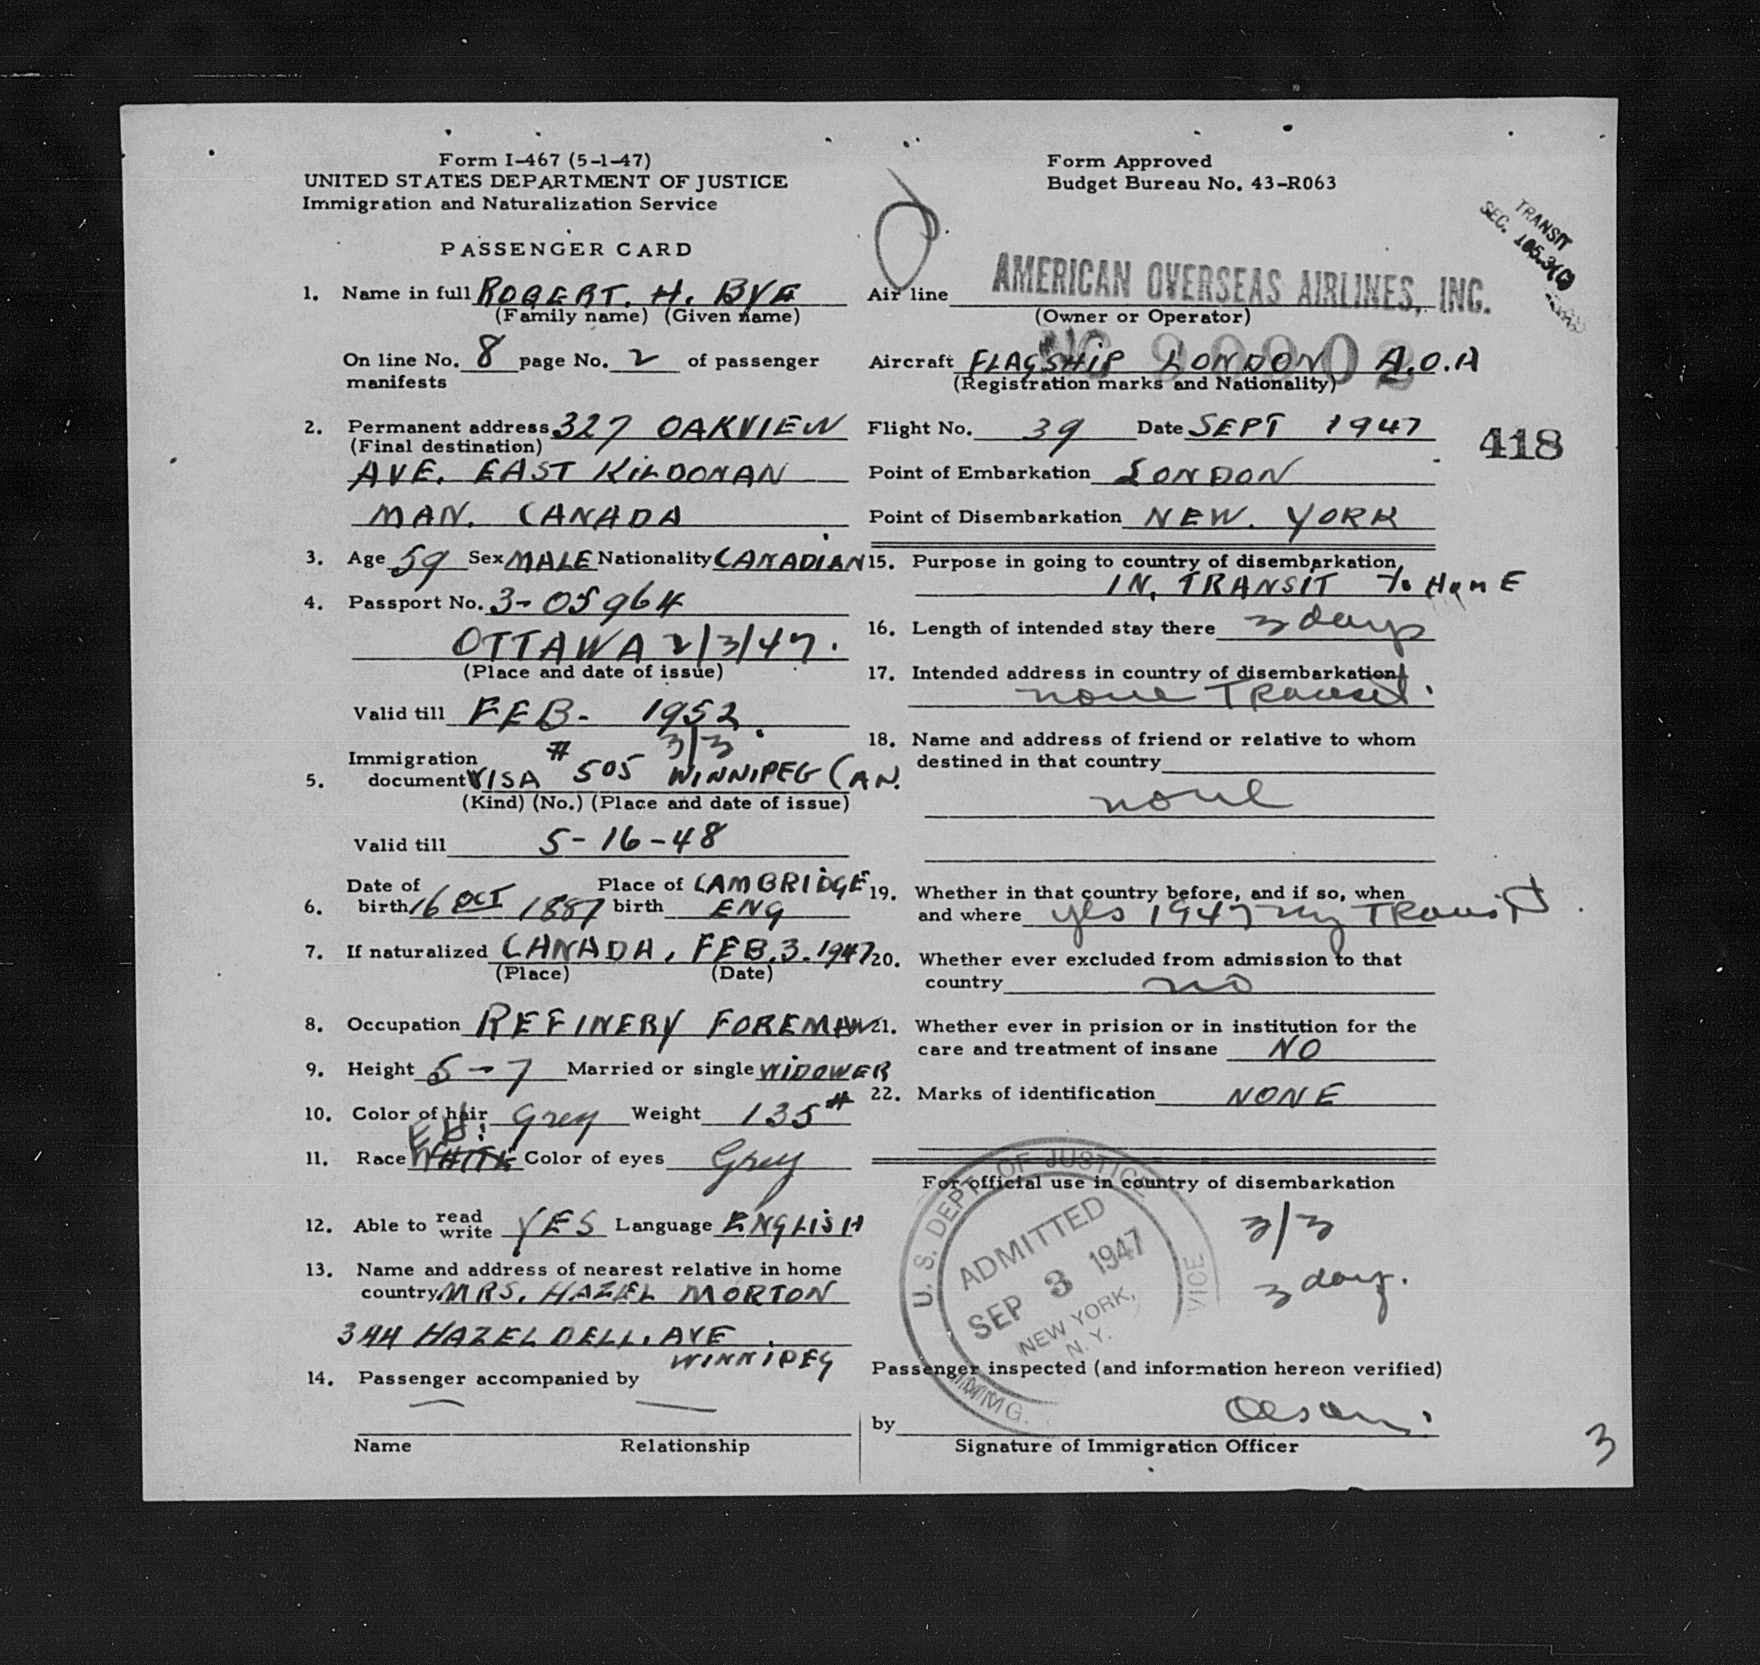 Form I-467 (5-1-47)
UNITED STATES DEPARTMENT OF JUSTICE
Immigration and Naturalization Service
PASSENGER CARD
1. Name in full ROBERT. H. BYE
(Family name) (Given name)
On line No. 8 page No. 2 of passenger
manifests
2. Permanent address 327 OAKVIEW
(Final destination)
AVE. EAST KILDONAN
MAN. CANADA
3. Age 59 Sex MALE Nationality CANADIAN
4. Passport No. 3-05964
OTTAWA 2/3/47.
(Place and date of issue)
Valid till FEB- 1952
3/3
Immigration
5. document VISA #505 WINNIPEG CAN.
(Kind) (No.) (Place and date of issue)
Valid till 5-16-48
Date of Place of CAMBRIDGE
6. birth 16 OCT 1887 birth ENG
7. If naturalized CANADA, FEB.3.1947
(Place) (Date)
8. Occupation REFINERY FOREMAN
9. Height 5-7 Married or single WIDOWER
10. Color of hair Grey Weight 135#
11. Race WHITE Color of eyes Grey
12. Able to read write YES Language ENGLISH
13. Name and address of nearest relative in home
country MRS. HAZEL MORTON
344 HAZEL DELL. AVE
WINNIPEG
14. Passenger accompanied by
Name Relationship
Form Approved
Budget Bureau No. 43-R063
TRANSIT
SEC.
Air line AMERICAN OVERSEAS AIRLINES, INC.
(Owner or Operator)
Aircraft FLAGSHIP LONDON A.O.A
(Registration marks and Nationality)
Flight No. 39 Date SEPT 1947
418
Point of Embarkation LONDON
Point of Disembarkation NEW. YORK
15. Purpose in going to country of disembarkation
IN, TRANSIT To HOME
16. Length of intended stay there 3 days
17. Intended address in country of disembarkation
none Transit.
18. Name and address of friend or relative to whom
destined in that country
none
19. Whether in that country before, and if so, when
and where yes 1947 NY Transit
20. Whether ever excluded from admission to that
country no
21. Whether ever in prision or in institution for the
care and treatment of insane NO
22. Marks of identification NONE
For official use in country of disembarkation
U. S. DEPT. OF JUSTICE
ADMITTED
SEP 3 1947
NEW YORK,
N. Y.
IMMIG.
3/3
3 day.
Passenger inspected (and information hereon verified)
by
Signature of Immigration Officer
3